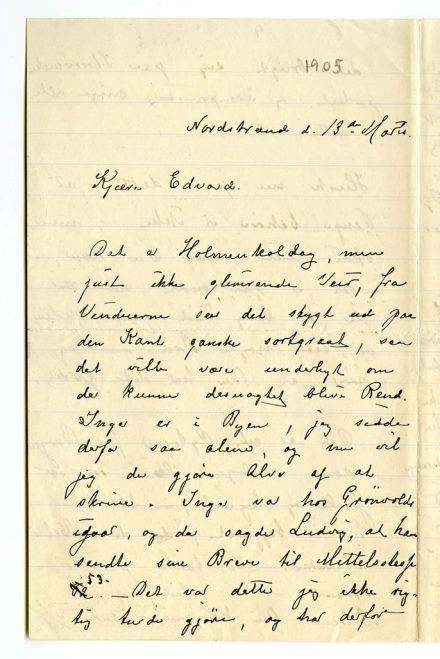 1905
Nordstrand d. 13de Marts.
Kjære Edvard.
Det er Holmenkoldag, men
just ikke glimrende Veir, fra
Vinduerne ser det skygt ud paa
den Kant ganske sortgraat, saa
det vilde være underligt om
der kunne desuagtet blive Rend.
Inger er i Byen, jeg sidder
derfor saa alene, og nu vil
jeg da gjøre Alvor af at
skrive. Inger var hos Grönvolds
igaar, og da sagde Ludvig, at han
sendte sine Breve til Mittelstrasse
53. – Det var dette jeg ikke rig-
tig turde gjøre, og har derfor